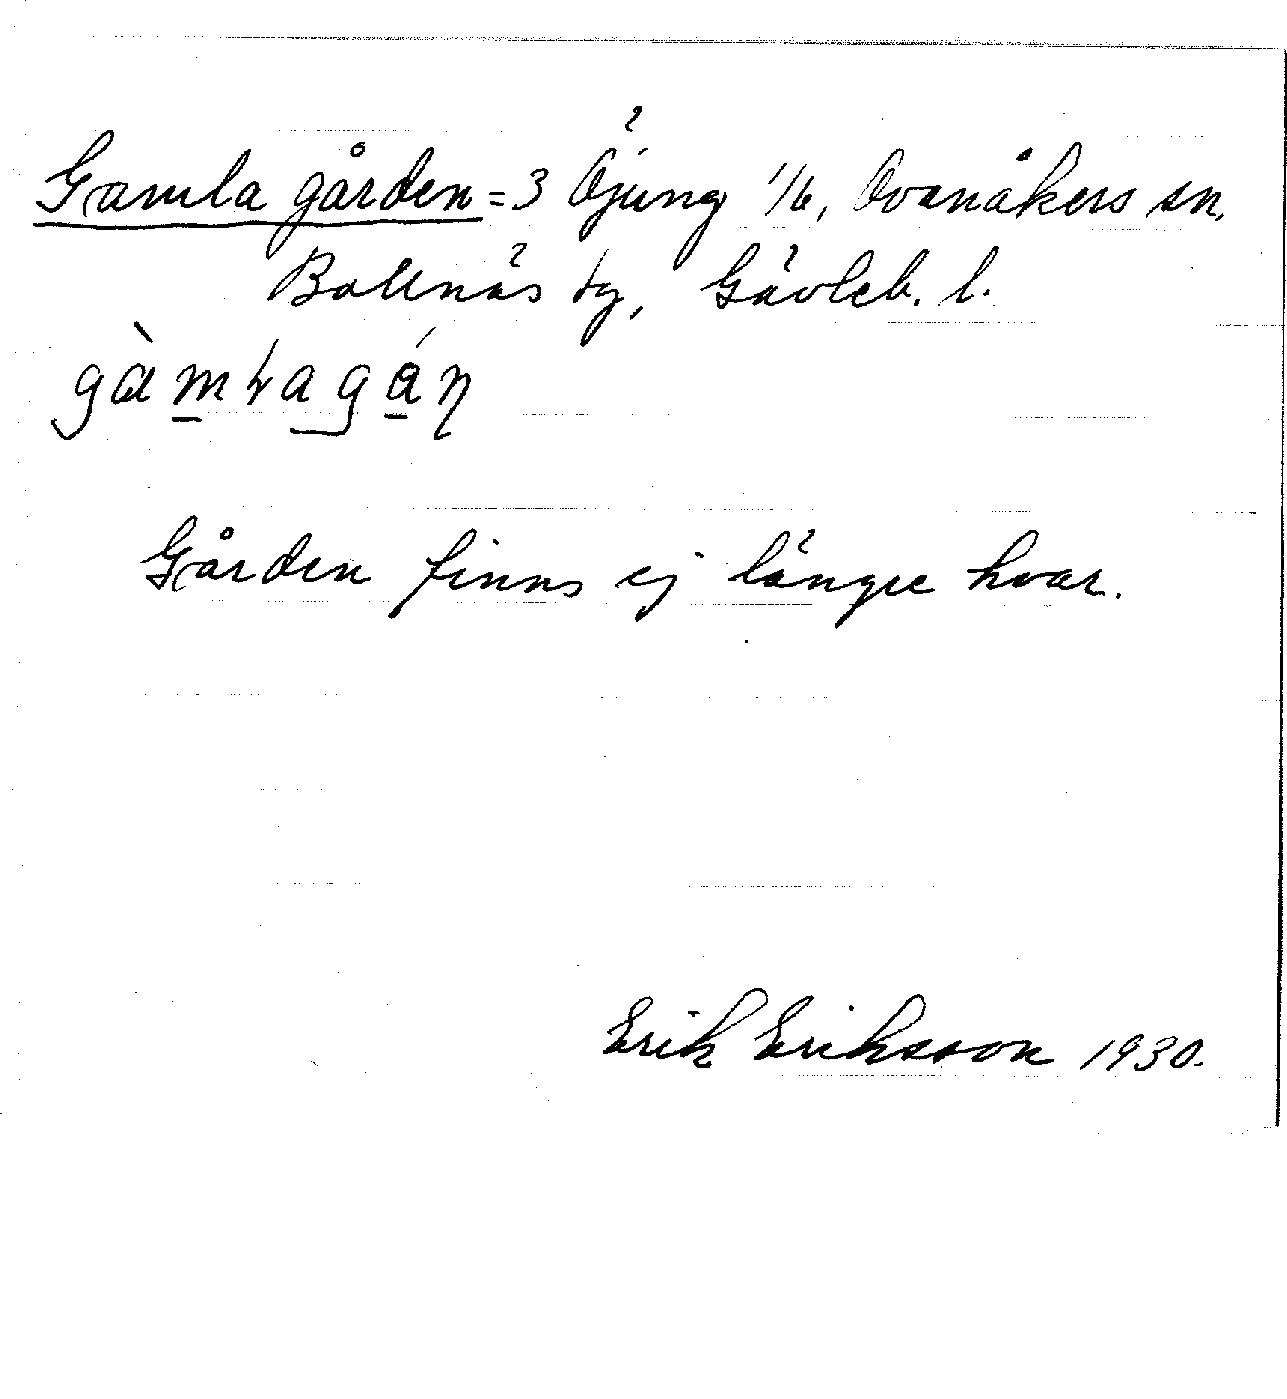 Gamla gården = 3 Öjung 1/6, Ovanåkers sn,
Bollnäs tg, Gävleb. l.
gàmɬagán
Gården finns ej längre kvar.
Erik Eriksson 1930.